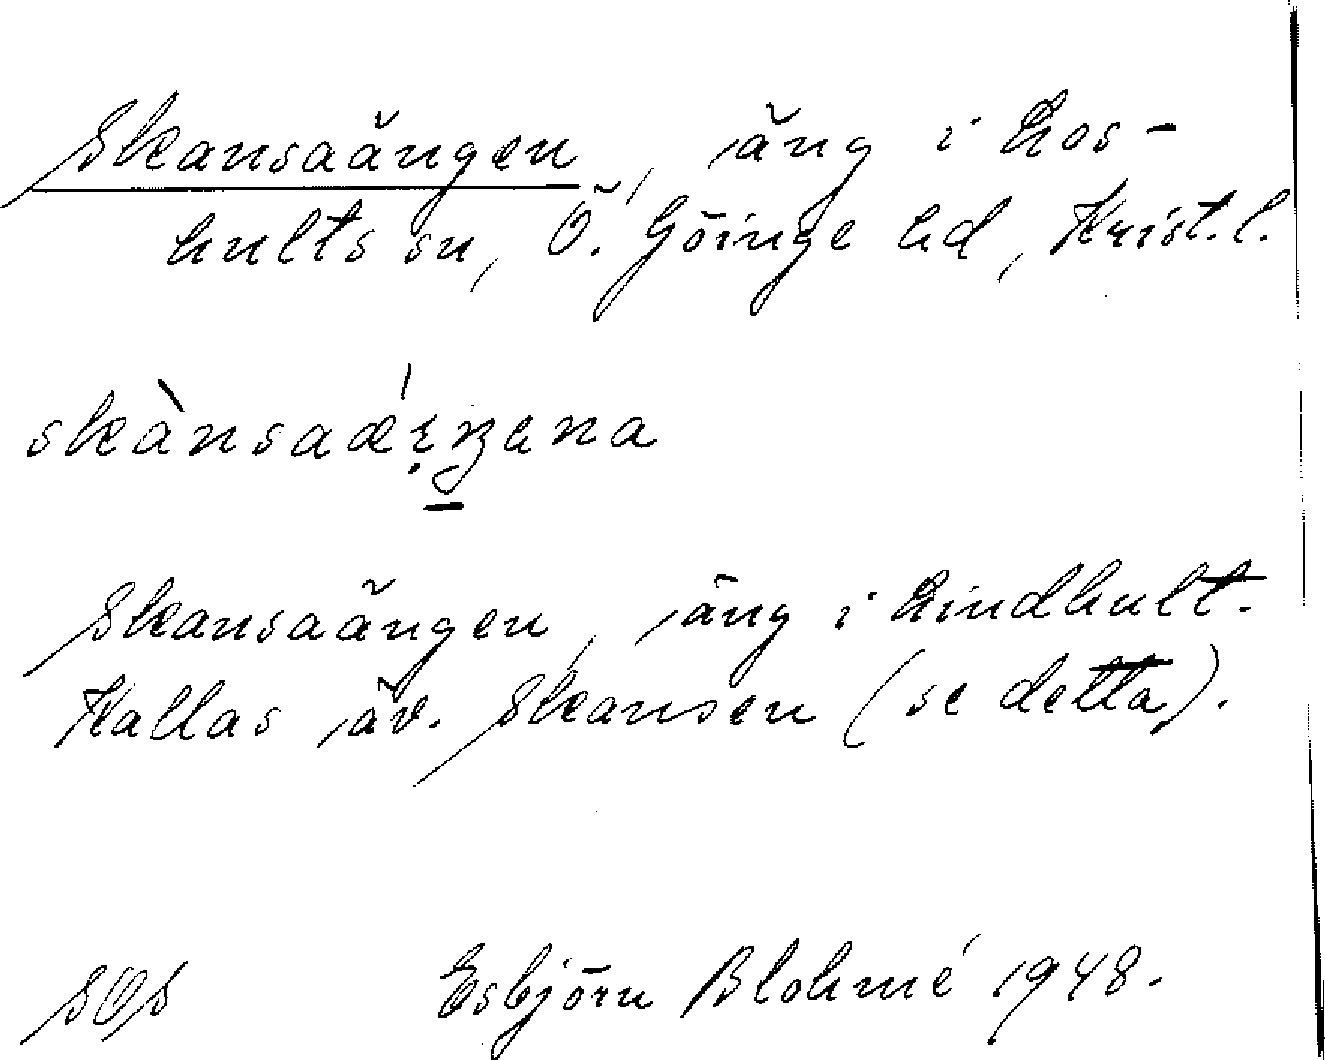 Skansaängen, äng i Los-
hults sn, Ö. Göinge hd, Krist. l.
Skansaängen, äng i Lindhult.
Kallas äv. Skansen (se detta).
SOS Esbjörn Blohmé 1948.